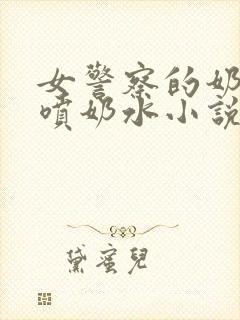 女警察的奶
噴奶水小說
黛蜜兒